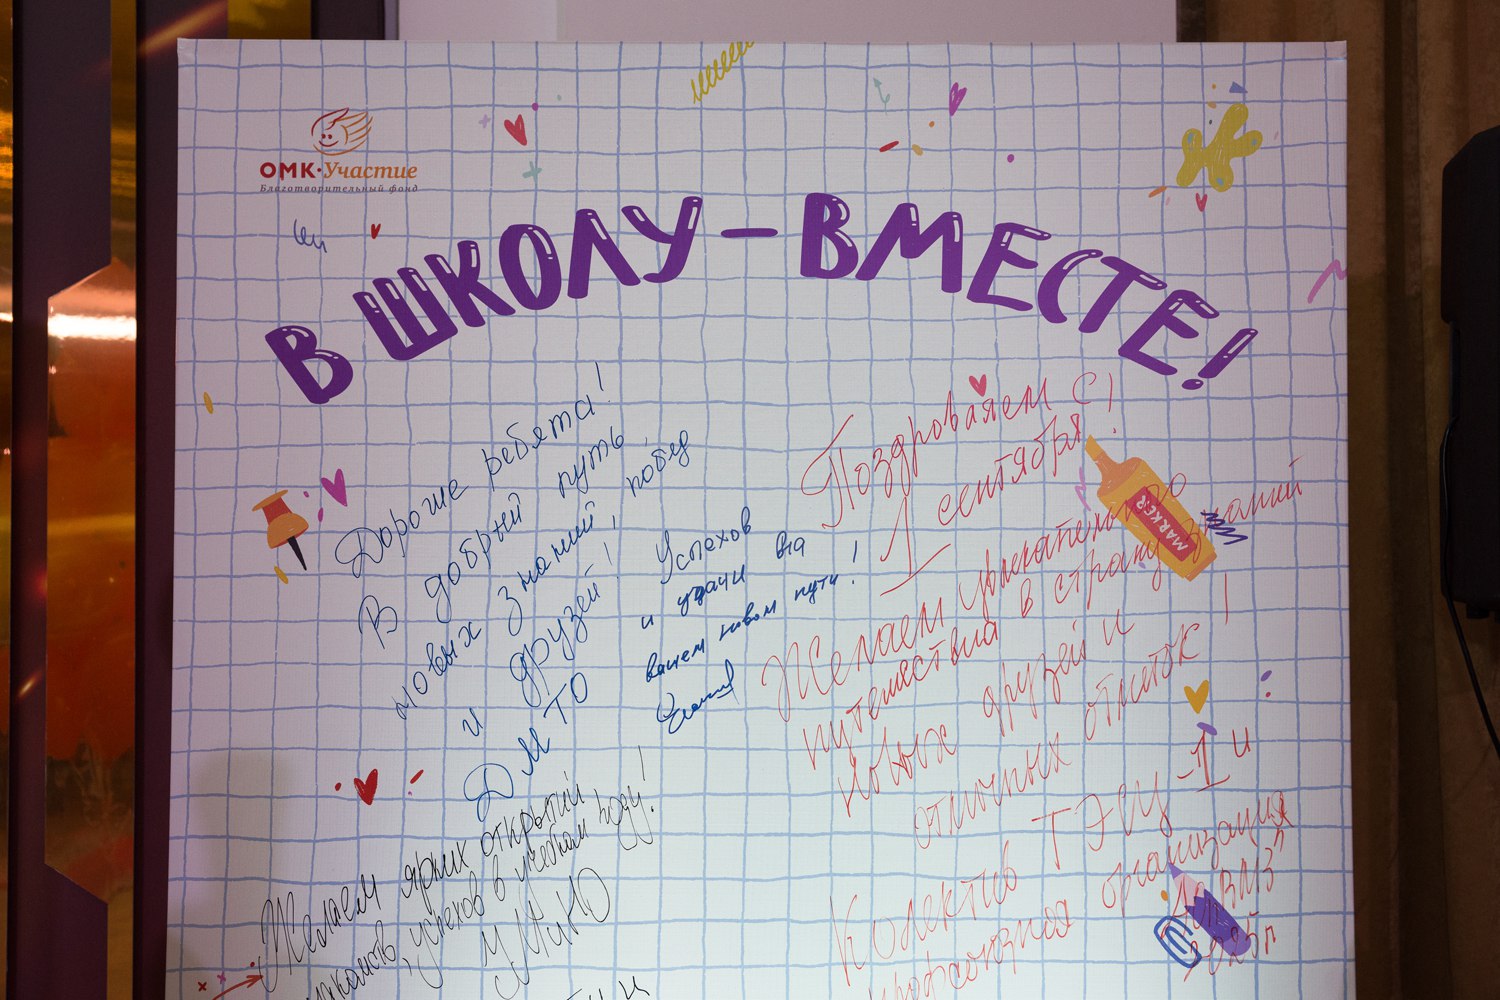 ОМК·Участие
Благотворительный фонд
В ШКОЛУ – ВМЕСТЕ!
Дорогие ребята!
В добрый путь,
новых знаний, побед
и друзей!
ДМТО
Успехов
и удачи на
вашем новом пути!
Поздровляем с
1 сентября!
Желаем увлекательного
путешествия в страну знаний
новых друзей и
отличных отметок!
Колектив ТЭСЦ-1 и
профсоюзная организация
2025г
MARKER
Желаем ярких открытий
успехов в учебном году!